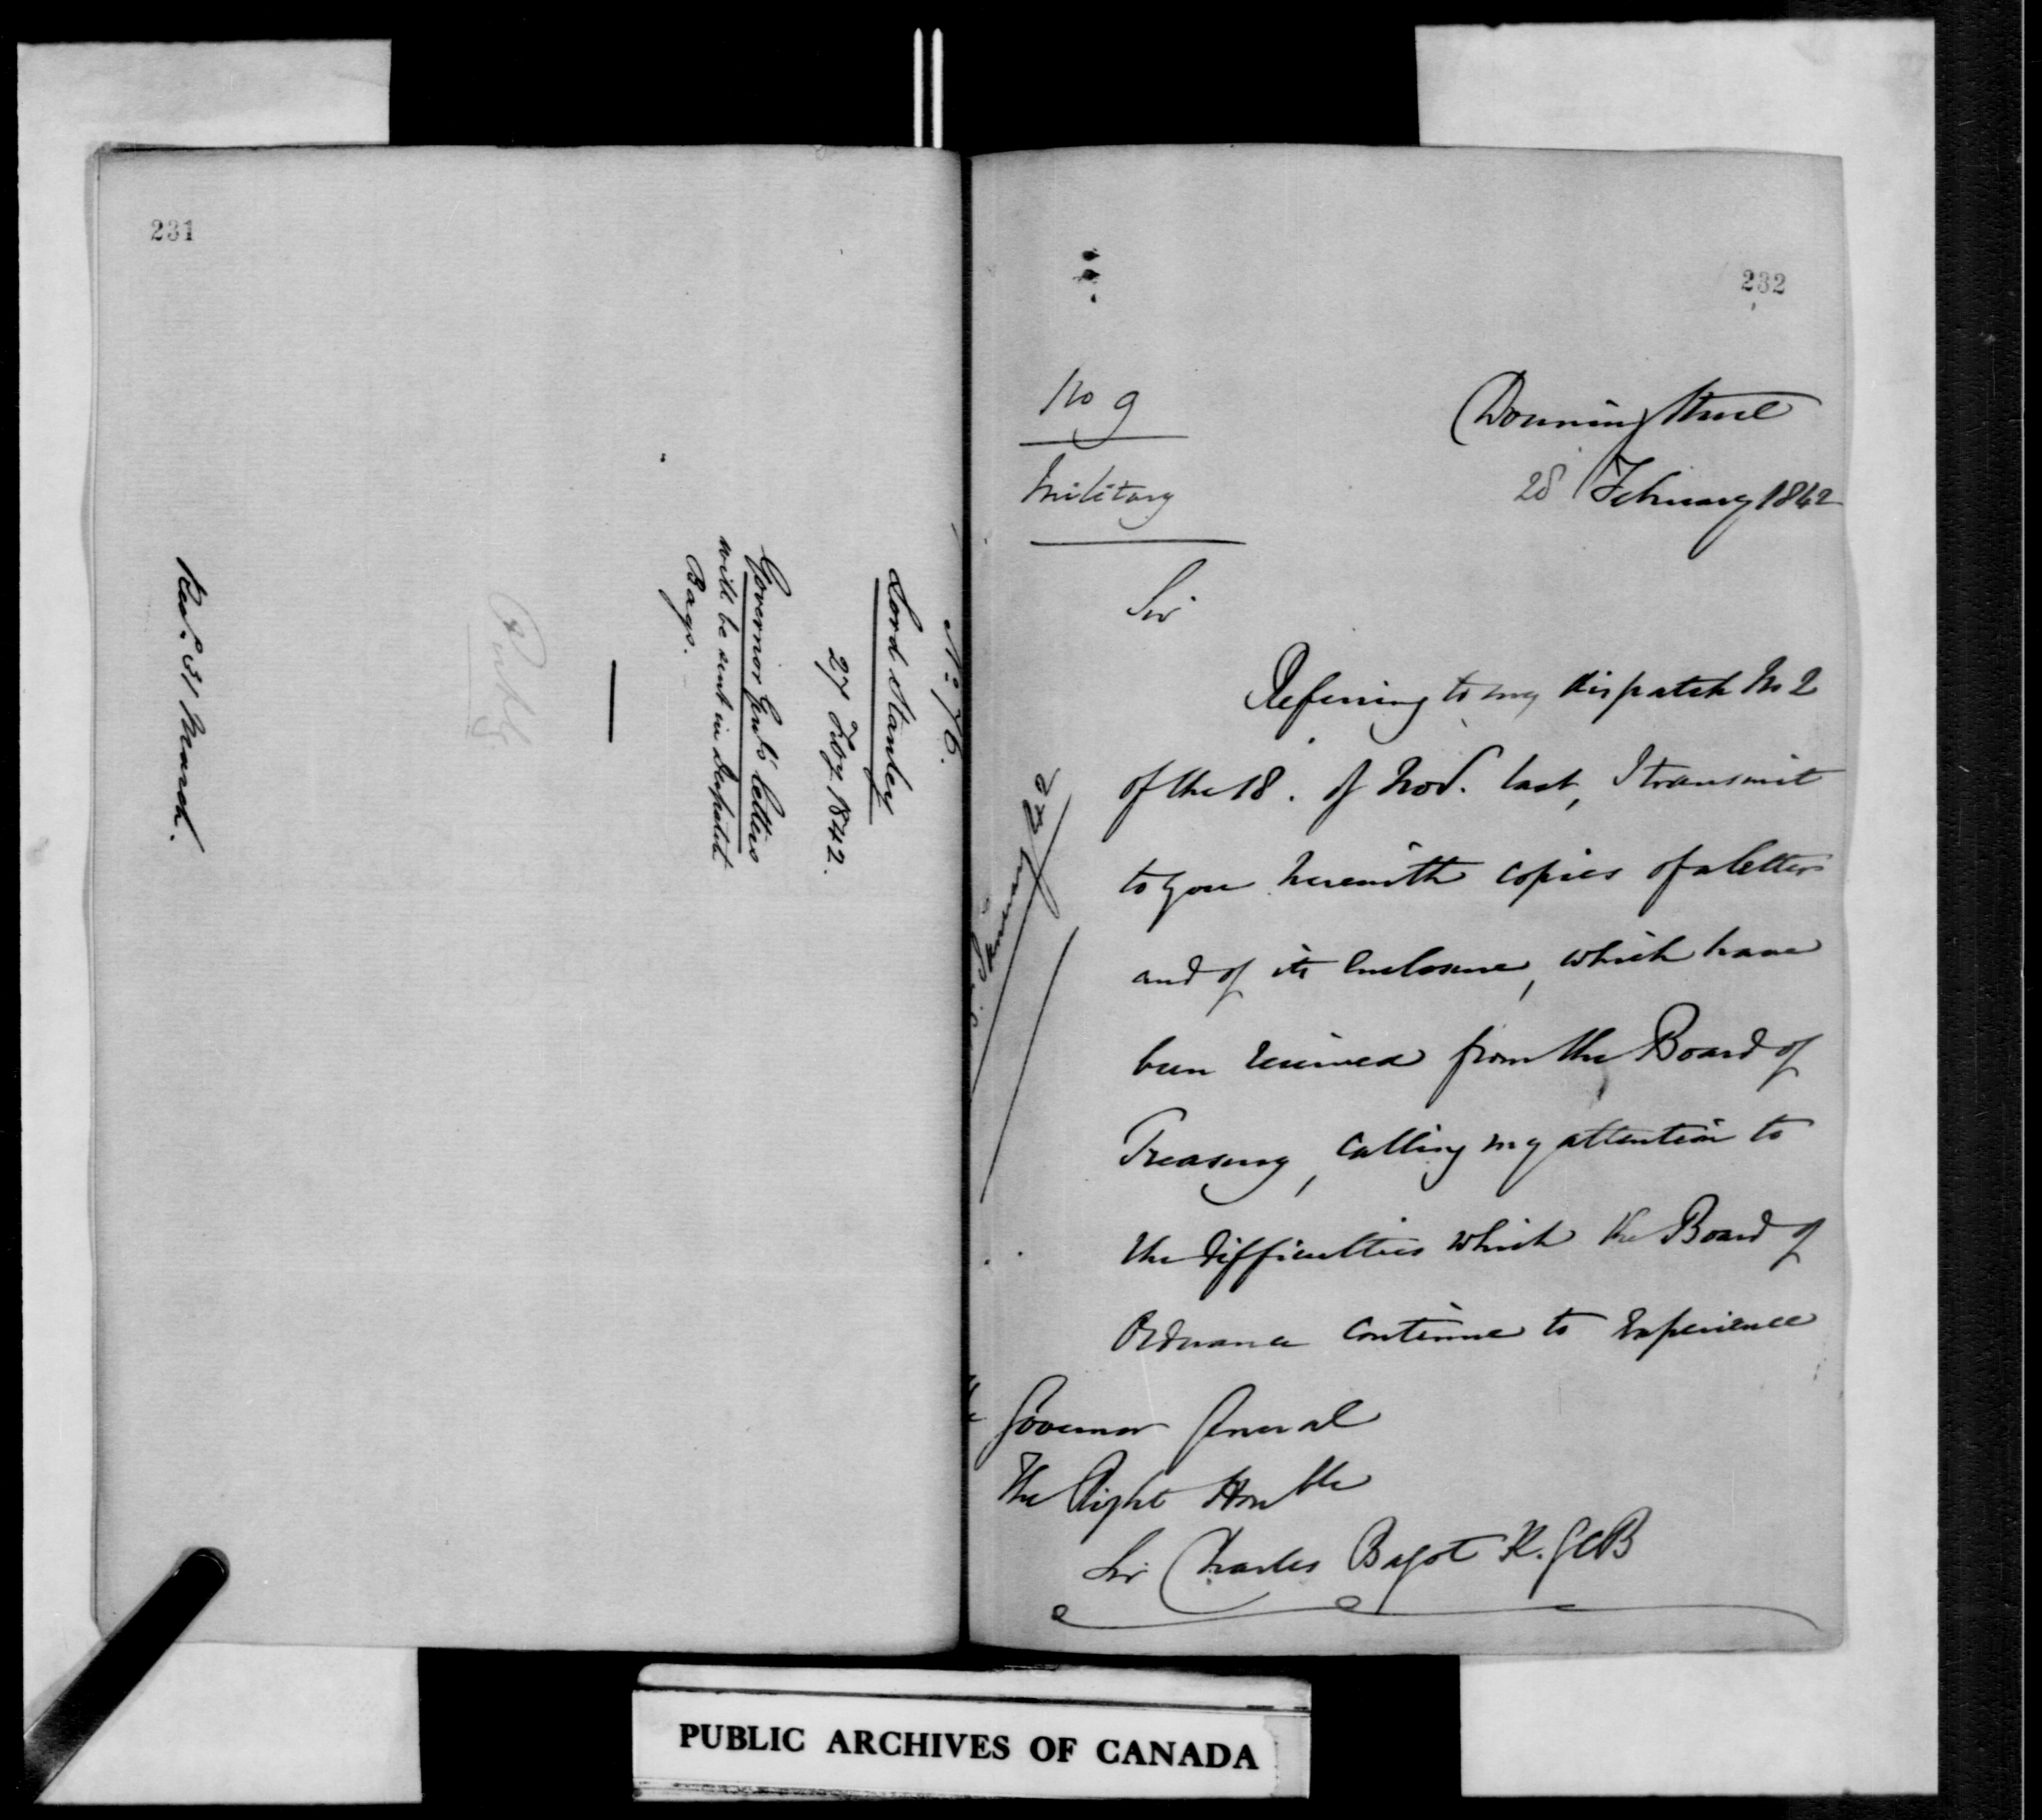 231
No. 76.
Lord Stanley
27 Feby. 1842.
Governor Genl's letters
will be sent in Despatch
Bags.
Recd. 31 March.
232
No 9
Military
Downing Street
28 February 1842
Sir
Referring to my dispatch No 2
of the 18. of Nov. last, I transmit
to you herewith copies of a letter
and of its Enclosure, which have
been received from the Board of
Treasury, calling my attention to
the difficulties which the Board of
Ordnance continue to Experience
Governor General
The Right Honble
Sir Charles Bagot K. GCB
PUBLIC ARCHIVES OF CANADA